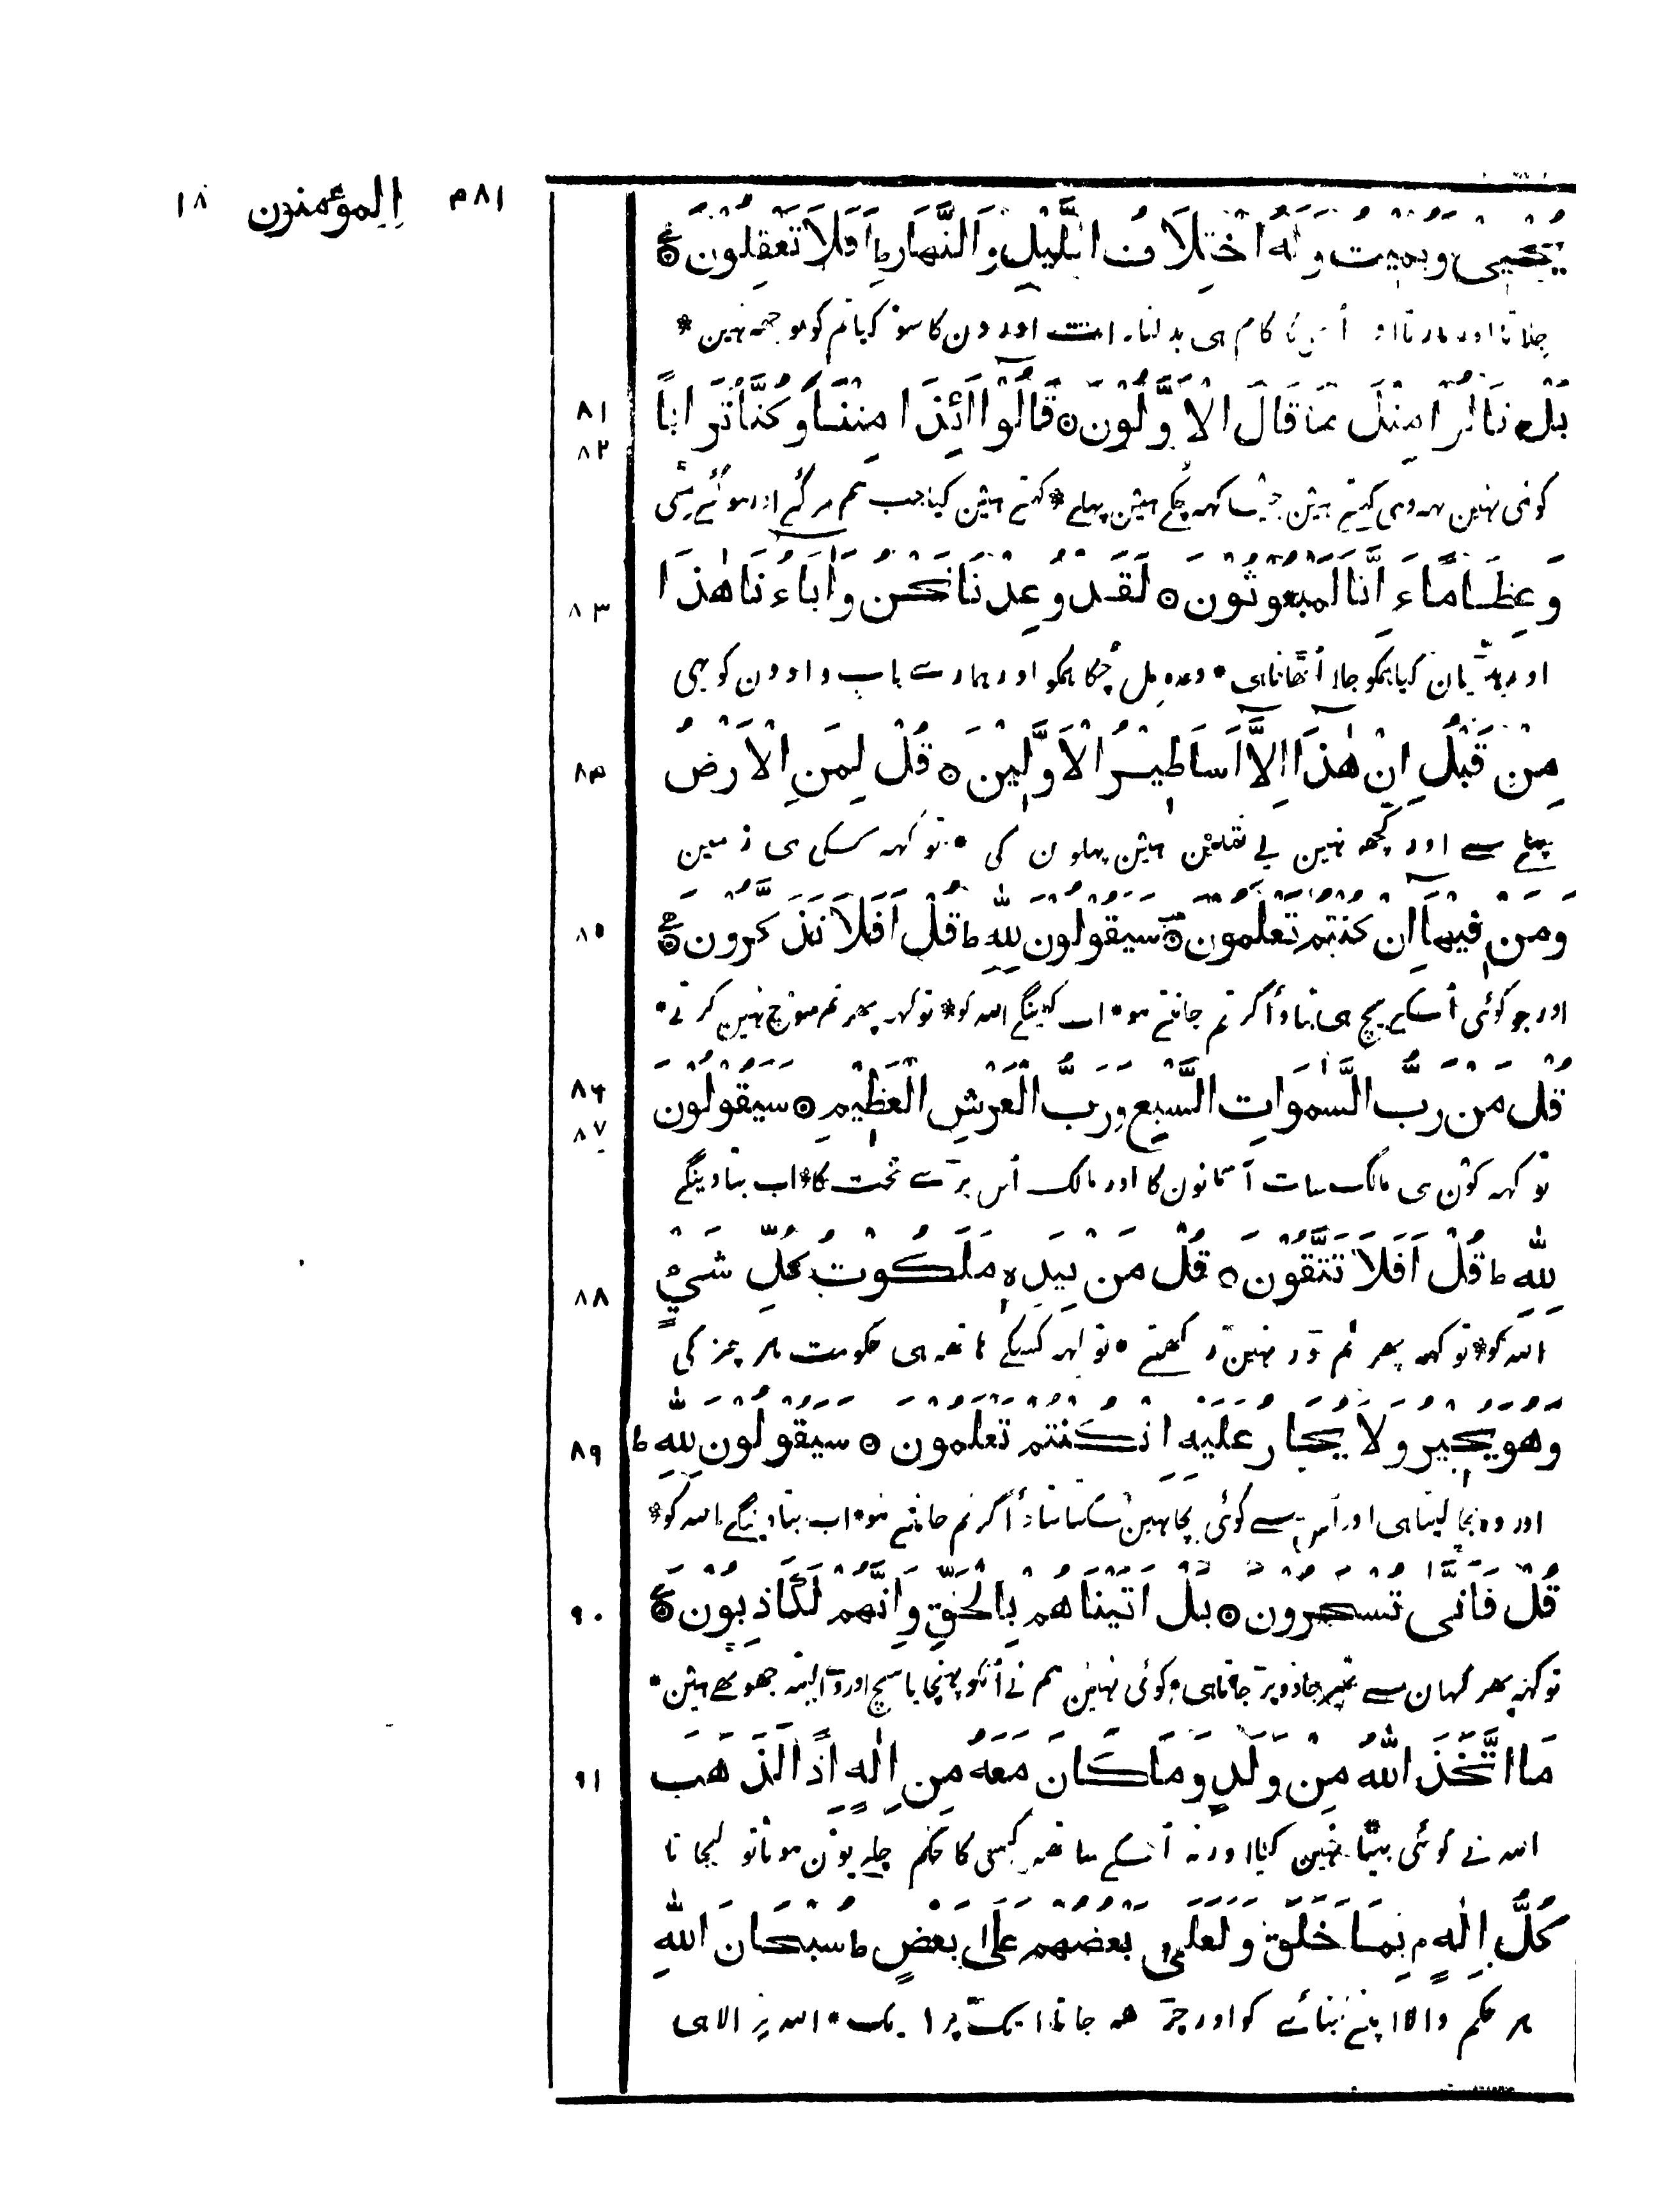 ۴۸۱ المؤمنون ۱۸
يُحْيِيْ وَيُمِيْتُ وَلَهُ اخْتِلَافُ الَّيْلِ وَالنَّهَارِ ط اَفَلَا تَعْقِلُوْنَ
جلاتا اور مارتا اور اُس کا کام ہی بدلنا رات اور دن کا سو کیا تم کو بوجھہ نہین *
۸۱ ۸۲ بَلْ قَالُوْا مِثْلَ مَا قَالَ الْاَوَّلُوْنَ ۝ قَالُوْٓا اَئِذَا مِتْنَا وَكُنَّا تُرَابًا
کوئی نہین یہہ وہی کہتے ہین جیسا کہہ چکے ہین پہلے * کہتے ہین کیا جب ہم مر گئے اور ہو گئے مٹی
۸۳ وَعِظَامًا ءَاِنَّا لَمَبْعُوْثُوْنَ ۝ لَقَدْ وُعِدْنَا نَحْنُ وَاٰبَاءُنَا هٰذَا
اور ہڈیان کیا ہمکو جلا اُٹھانا ہی * وعدہ مل چکا ہمکو اور ہمارے باپ دادون کو یہی
۸۴ مِنْ قَبْلُ اِنْ هٰذَآ اِلَّآ اَسَاطِيْرُ الْاَوَّلِيْنَ ۝ قُلْ لِمَنِ الْاَرْضُ
پہلے سے اور کچھہ نہین یے نقلین ہین پہلون کی * تو کہہ کسکی ہی زمین
۸۵ وَمَنْ فِيْهَآ اِنْ كُنْتُمْ تَعْلَمُوْنَ ۝ سَيَقُوْلُوْنَ لِلّٰهِ ط قُلْ اَفَلَا تَذَكَّرُوْنَ
اور جو کوئی اُسکے بیچ ہی بتاؤ اگر تم جانتے ہو * اب کہینگے اللہ کو * تو کہہ پھر تم سوچ نہین کرتے *
۸۶ ۸۷ قُلْ مَنْ رَبُّ السَّمٰوَاتِ السَّبْعِ وَرَبُّ الْعَرْشِ الْعَظِيْمِ ۝ سَيَقُوْلُوْنَ
تو کہہ کون ہی مالک سات آسمانون کا اور مالک اُس بڑے تخت کا * اب بتاوینگے
۸۸ لِلّٰهِ ط قُلْ اَفَلَا تَتَّقُوْنَ ۝ قُلْ مَنْ بِيَدِهٖ مَلَكُوْتُ كُلِّ شَيْءٍ
اللہ کو * تو کہہ پھر تم ڈر نہین رکھتے * تو کہہ کسکے ہاتھہ ہی حکومت ہر چیز کی
۸۹ وَهُوَ يُجِيْرُ وَلَا يُجَارُ عَلَيْهِ اِنْ كُنْتُمْ تَعْلَمُوْنَ ۝ سَيَقُوْلُوْنَ لِلّٰهِ ط
اور وہ بچا لیتا ہی اور اُس سے کوئی بچا نہین سکتا بتاؤ اگر تم جانتے ہو * اب بتاوینگے اللہ کو *
۹۰ قُلْ فَاَنّٰى تُسْحَرُوْنَ ۝ بَلْ اَتَيْنَاهُمْ بِالْحَقِّ وَاِنَّهُمْ لَكَاذِبُوْنَ
تو کہہ پھر کہان سے تمپر جادو پڑ جاتا ہی * کوئی نہین ہم نے اُنکو پہنچایا سچ اور وے البتہ جھوٹھے ہین *
۹۱ مَا اتَّخَذَ اللّٰهُ مِنْ وَلَدٍ وَمَا كَانَ مَعَهُ مِنْ اِلٰهٍ اِذًا لَذَهَبَ
اللہ نے کوئی بیٹا نہین کیا اور نہ اُسکے ساتھہ کسی کا حکم چلے یون ہوتا تو لیجاتا
كُلُّ اِلٰهٍ بِمَا خَلَقَ وَلَعَلٰى بَعْضُهُمْ عَلٰى بَعْضٍ ط سُبْحَانَ اللّٰهِ
ہر حکم والا اپنے بنائے کو اور چڑھہ جاتا ایک پر ایک * اللہ نرالا ہی